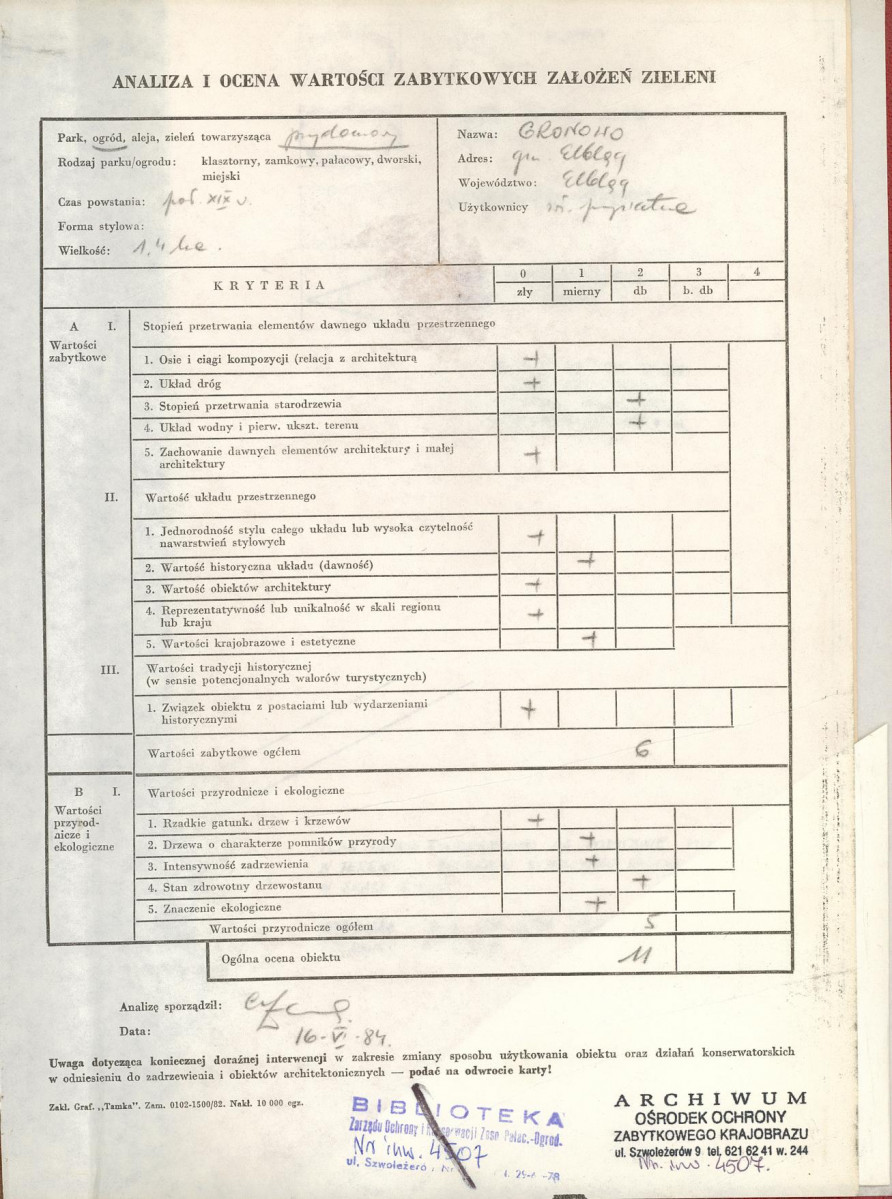 ANALIZA I OCENA WARTOŚCI ZABYTKOWYCH ZAŁOŻEŃ ZIELENI
Park, ogród, aleja, zieleń towarzysząca przydomowy
Rodzaj parku/ogrodu: klasztorny, zamkowy, pałacowy, dworski,
miejski
Czas powstania: poł. XIX w.
Forma stylowa:
Wielkość: 1,4 ha.
Nazwa: GRONOWO
Adres: gm. Elbląg
Województwo: Elbląg
Użytkownicy wł. prywatna
KRYTERIA
0 1 2 3 4
zły mierny db b. db
A I. Stopień przetrwania elementów dawnego układu przestrzennego
Wartości
zabytkowe
1. Osie i ciągi kompozycji (relacja z architekturą +
2. Układ dróg +
3. Stopień przetrwania starodrzewia +
4. Układ wodny i pierw. ukszt. terenu +
5. Zachowanie dawnych elementów architektury i małej
architektury +
II. Wartość układu przestrzennego
1. Jednorodność stylu całego układu lub wysoka czytelność
nawarstwień stylowych +
2. Wartość historyczna układu (dawność) +
3. Wartość obiektów architektury +
4. Reprezentatywność lub unikalność w skali regionu
lub kraju +
5. Wartości krajobrazowe i estetyczne +
III. Wartości tradycji historycznej
(w sensie potencjonalnych walorów turystycznych)
1. Związek obiektu z postaciami lub wydarzeniami
historycznymi +
Wartości zabytkowe ogółem 6
B I. Wartości przyrodnicze i ekologiczne
Wartości
przyrod-
nicze i
ekologiczne
1. Rzadkie gatunki drzew i krzewów +
2. Drzewa o charakterze pomników przyrody +
3. Intensywność zadrzewienia +
4. Stan zdrowotny drzewostanu +
5. Znaczenie ekologiczne +
Wartości przyrodnicze ogółem 5
Ogólna ocena obiektu 11
Analizę sporządził:
Data: 16-VI-84.
Uwaga dotycząca koniecznej doraźnej interwencji w zakresie zmiany sposobu użytkowania obiektu oraz działań konserwatorskich
w odniesieniu do zadrzewienia i obiektów architektonicznych — podać na odwrocie karty!
Zakł. Graf. „Tamka”. Zam. 0102-1500/82. Nakł. 10 000 egz.
BIBLIOTEKA
Zarządu Ochrony i Konserwacji Zesp. Pałac.-Ogrod.
Nr inw. 4507
ul. Szwoleżerów
ARCHIWUM
OŚRODEK OCHRONY
ZABYTKOWEGO KRAJOBRAZU
ul. Szwoleżerów 9 tel. 621 62 41 w. 244
Nr. inw. 4507.